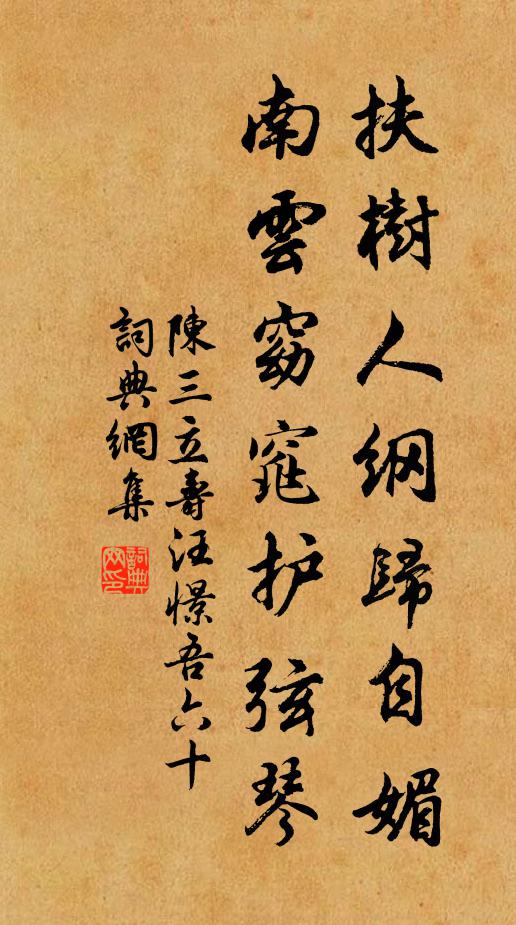 扶樹人綱歸自媚
南雲窈窕护弦琴
陳三立壽汪憬吾六十
詞典網集
詞典網印